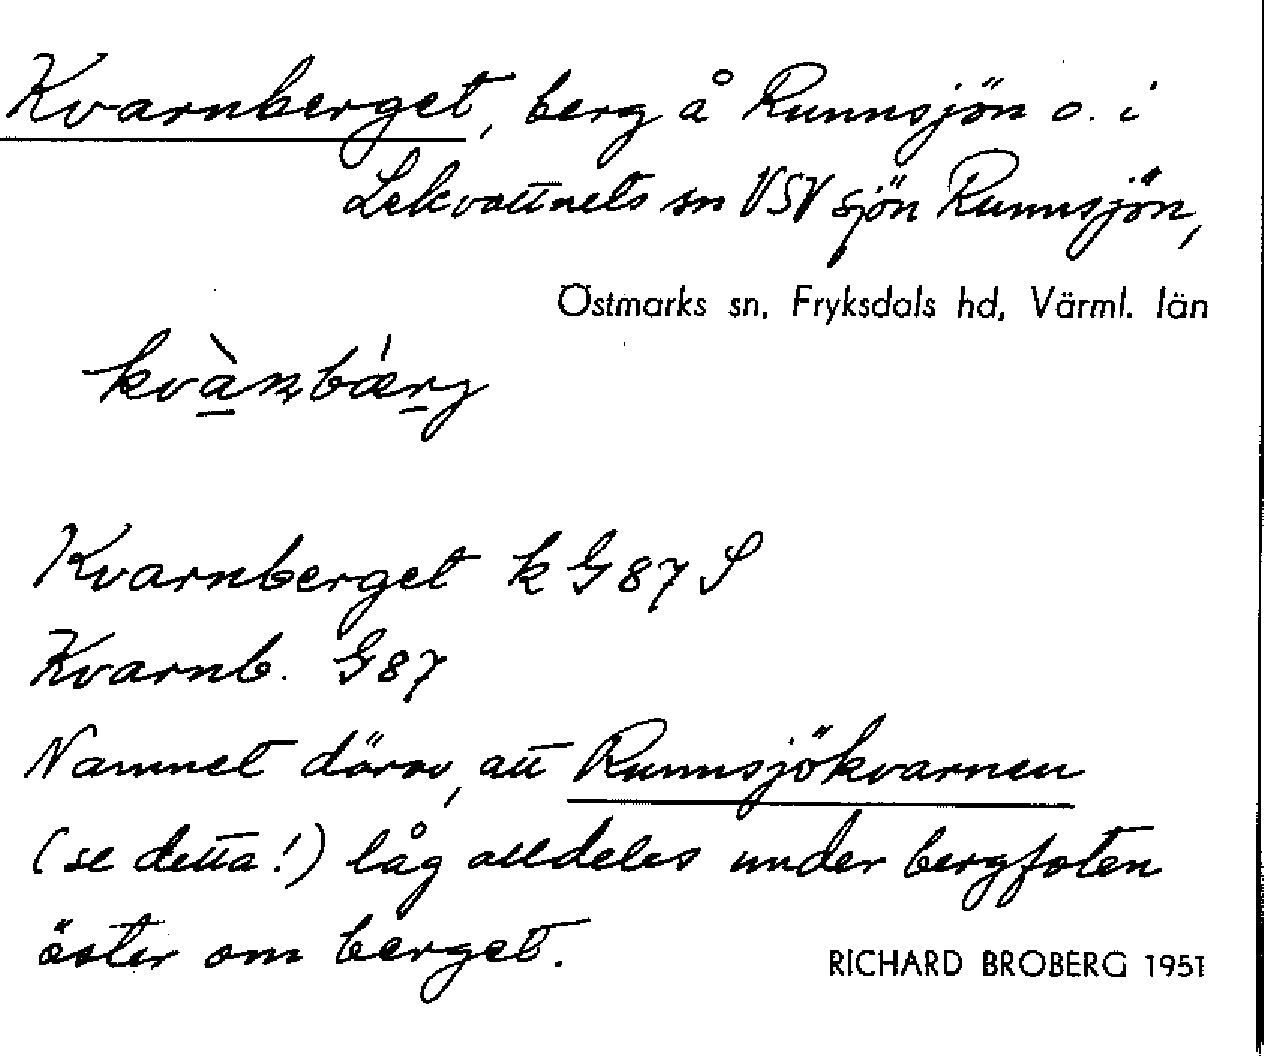 Kvarnberget, berg å Runnsjön o. i
Lekvattnets sn VSV sjön Runnsjön,
Östmarks sn, Fryksdals hd, Värml. län
kvànbǽrj
Kvarnberget k G87 S
Kvarnb. G87
Namnet därav, att Runnsjökvarnen
(se detta!) låg alldeles under bergfoten
öster om berget.
RICHARD BROBERG 1951